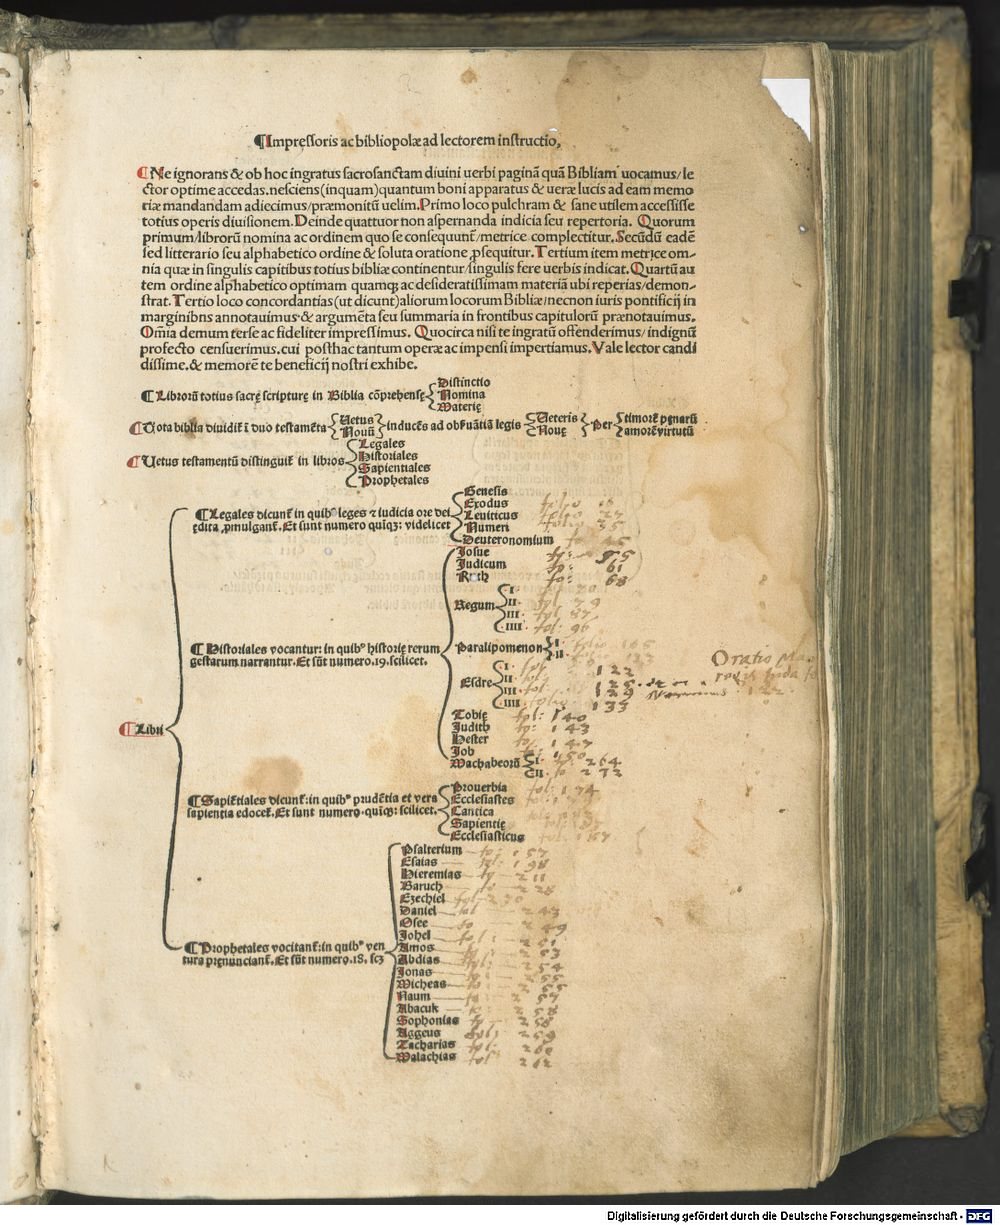 ¶Impressoris ac bibliopolæ ad lectorem instructio,
¶Ne ignorans & ob hoc ingratus sacrosanctam diuini uerbi paginã quã Bibliam uocamus/le
ctor optime accedas.nesciens(inquam)quantum boni apparatus & ueræ lucis ad eam memo
riæ mandandam adiecimus/præmonitũ uelim.Primo loco pulchram & sane utilem accessisse
totius operis diuisionem.Deinde quattuor non aspernanda indicia seu repertoria. Quorum
primum/librorũ nomina ac ordinem quo se consequunt̃/metrice complectitur.Secũdũ eadẽ
sed litterario seu alphabetico ordine & soluta oratione ꝓsequitur.Tertium item metrice om-
nia quæ in singulis capitibus totius bibliæ continentur/singulis fere uerbis indicat.Quartũ au
tem ordine alphabetico optimam quamqꝫ ac desideratissimam materiã ubi reperias/demon-
strat.Tertio loco concordantias(ut dicunt)aliorum locorum Bibliæ/necnon iuris pontificij in
marginibns annotauimus·& argumẽta seu summaria in frontibus capitulorũ prænotauimus.
Om̃ia demum terse ac fideliter impressimus. Quocirca nisi te ingratũ offenderimus/indignũ
profecto censuerimus.cui posthac tantum operæ ac impensi impertiamus.Vale lector candi
dissime.& memorẽ te beneficij nostri exhibe.
¶Librorũ totius sacrę scripturę in Biblia cõprehensę
Distinctio
Nomina
Materię
¶Tota biblia diuidit̃ ĩ duo testamẽta
Uetus
Nouũ
inducẽs ad obẽuãtiã legis
Ueteris
Nouę
Per
timorẽ penarũ
amorẽ virtutũ
¶Uetus testamentũ distinguit̃ in libros
Legales
Historiales
Sapientiales
Prophetales
¶Libri
¶Legales dicunt̃ in quibꝰ leges ⁊ iudicia ore dei
edita ꝓmulgant̃. Et sunt numero quĩqꝫ: videlicet
Genesis
Exodus folio 16
Leuiticus folio 27
Numeri folio 35
Deuteronomium fo 45
¶Historiales vocantur: in quibꝰ historię rerum
gestarum narrantur. Et sũt numero.19.scilicet.
Josue fo: 55
Judicum fo: 61
Ruth fo: 68
Regum
I
II fol 79
III fol 87
IIII fol: 96
Paralipomenon
I
II
Esdre
I 122
II 125
III 129
IIII 133
Oratio
Tobię fol: 140
Judith fo: 143
Hester fo 147
Job 150
Machabeorũ
I fo: 264
II fo 272
¶Sapiẽtiales dicunt̃: in quibꝰ prudẽtia et vera
sapientia edocet̃. Et sunt numero quĩqꝫ: scilicet.
Prouerbia fol: 174
Ecclesiastes
Cantica
Sapientię
Ecclesiasticus
¶Prophetales vocitant̃: in quibꝰ ven
tura pręnunciant̃. Et sũt numero.18. scꝫ
Psalterium fo: 157
Esaias
Hieremias fo 211
Baruch fo 228
Ezechiel fol 230
Daniel fol 243
Osee fo 249
Johel
Amos
Abdias
Jonas
Micheas
Naum
Abacuk
Sophonias fo 258
Aggeus fol 259
Zacharias fol: 260
Malachias fol 262
Digitalisierung gefördert durch die Deutsche Forschungsgemeinschaft - DFG